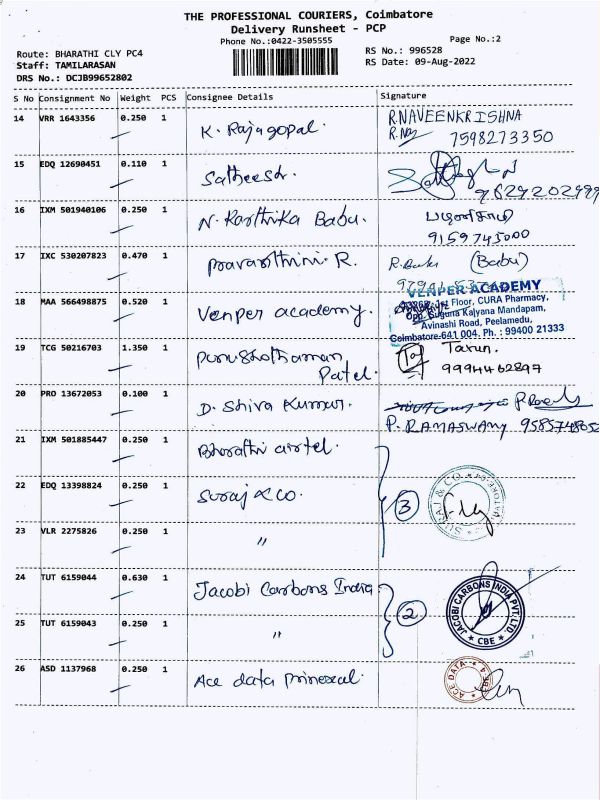 THE PROFESSIONAL COURIERS, Coimbatore
Delivery Runsheet - PCP
Phone No.:0422-3505555
Page No.:2
Route: BHARATHI CLY PC4
RS No.: 996528
Staff: TAMILARASAN
RS Date: 09-Aug-2022
DRS No.: DCJB99652802
S No Consignment No Weight PCS Consignee Details Signature
14 VRR 1643356 0.250 1 K. Rajagopal. R.NAVEENKRISHNA
7598273350
15 EDQ 12690451 0.110 1 Satheesh.
9629202999
16 IXM 501940106 0.250 1 N. Karthika Babu. பழனிச்சாமி
9159745000
17 IXC 530207823 0.470 1 Pravarthini R. R. Babu (Babu)
18 MAA 566498875 0.520 1 Venper academy. VENPER ACADEMY
1st Floor, CURA Pharmacy,
Opp. Suguna Kalyana Mandapam,
Avinashi Road, Peelamedu,
Coimbatore-641 004. Ph. : 99400 21333
19 TCG 50216703 1.350 1 Purushothaman Patel. Tarun.
9994462897
20 PRO 13672053 0.100 1 D. Shiva Kumar.
P. RAMASWAMY 9585748052
21 IXM 501885447 0.250 1 Bharathi airtel.
22 EDQ 13398824 0.250 1 Suraj & co. 3 SURAJ & CO.
23 VLR 2275826 0.250 1 "
24 TUT 6159044 0.630 1 Jacobi Carbons India JACOBI CARBONS INDIA PVT. LTD. CBE
25 TUT 6159043 0.250 1 " 2
26 ASD 1137968 0.250 1 Ace data ACE DATA